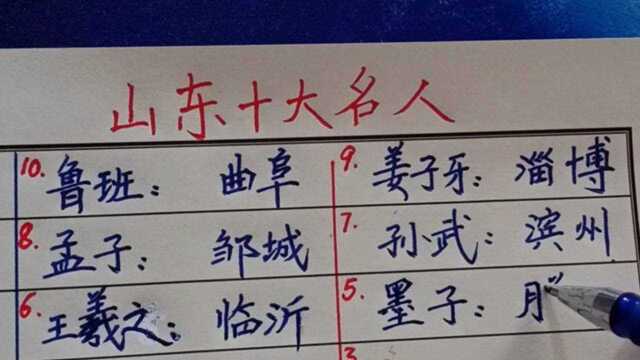 山东十大名人
10. 鲁班： 曲阜 9. 姜子牙： 淄博
8. 孟子： 邹城 7. 孙武： 滨州
6. 王羲之： 临沂 5. 墨子：
3